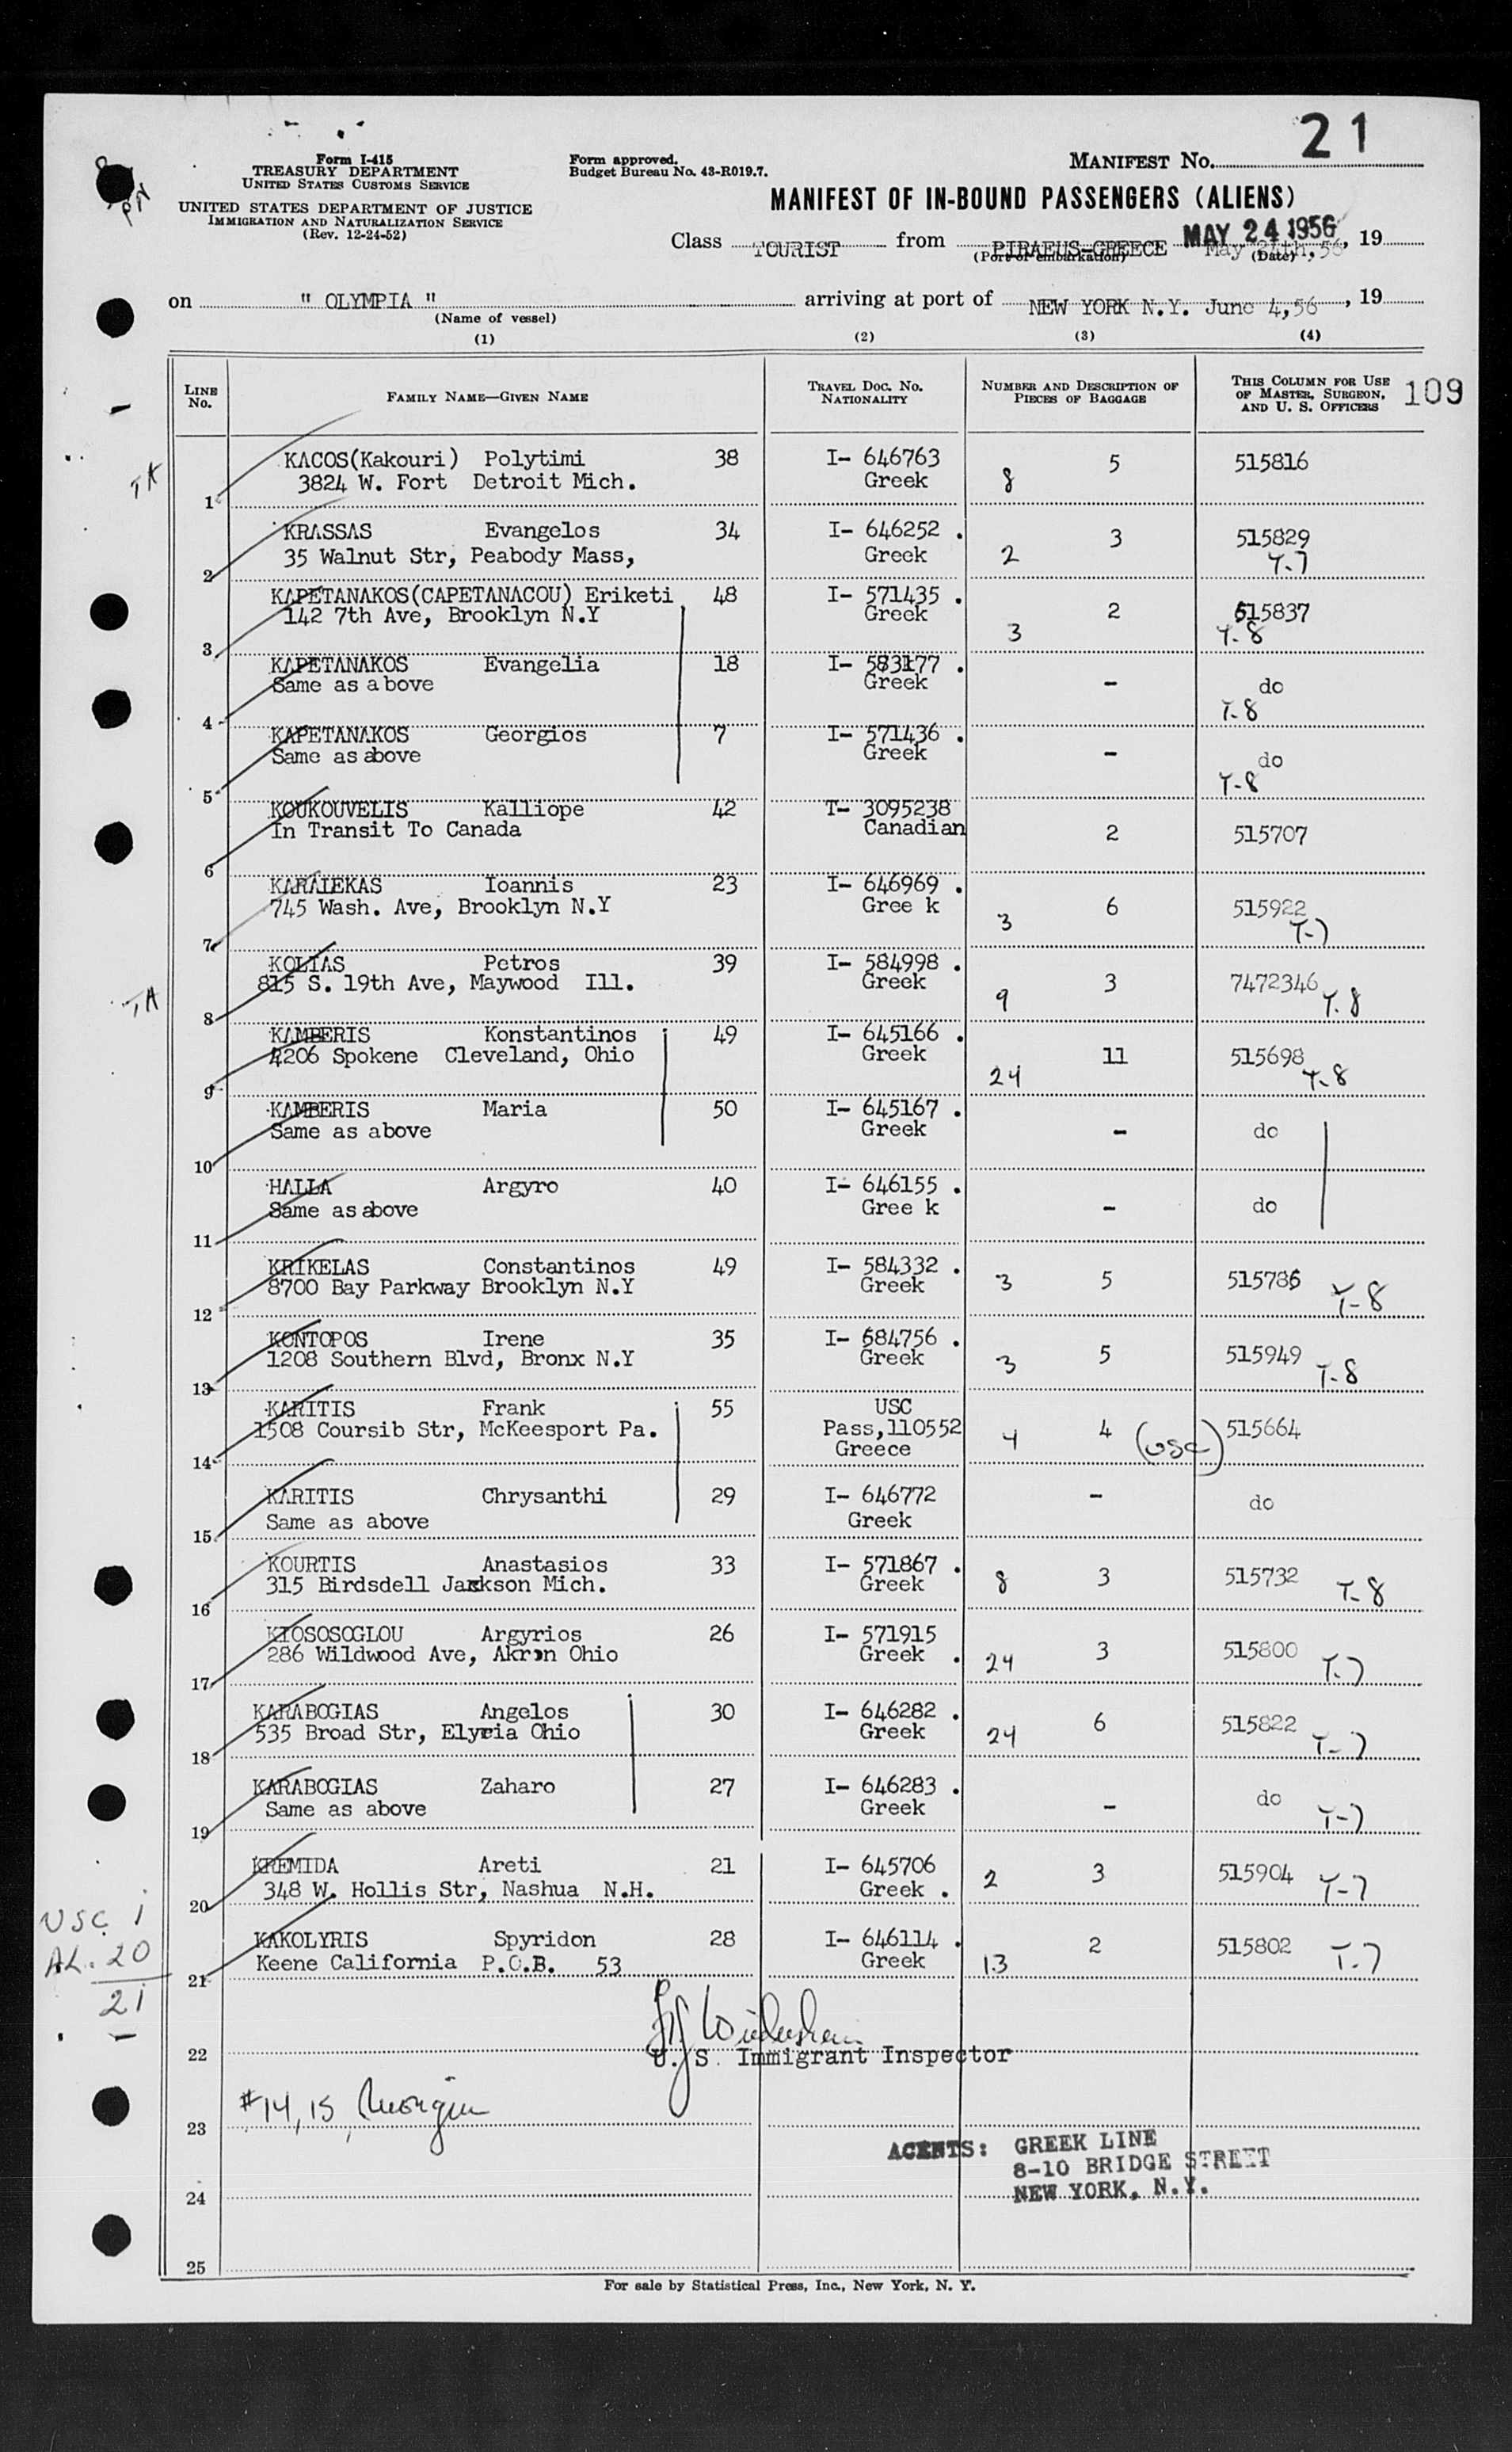 21
Form I-415
TREASURY DEPARTMENT
UNITED STATES CUSTOMS SERVICE
UNITED STATES DEPARTMENT OF JUSTICE
IMMIGRATION AND NATURALIZATION SERVICE
(Rev. 12-24-52)
Form approved.
Budget Bureau No. 43-R019.7.
MANIFEST NO.
MANIFEST OF IN-BOUND PASSENGERS (ALIENS)
MAY 24 1956
Class TOURIST from PIRAEUS-GREECE May 24th,56, 19
(Port of embarkation) (Date)
on " OLYMPIA " arriving at port of NEW YORK N.Y. June 4,56, 19
(Name of vessel)
(1) (2) (3) (4)
LINE NO. FAMILY NAME—GIVEN NAME TRAVEL DOC. NO. NATIONALITY NUMBER AND DESCRIPTION OF PIECES OF BAGGAGE THIS COLUMN FOR USE OF MASTER, SURGEON, AND U. S. OFFICERS 109
KACOS(Kakouri) Polytimi 38 I- 646763 5 515816
1 3824 W. Fort Detroit Mich. Greek 8
KRASSAS Evangelos 34 I- 646252 . 3 515829
2 35 Walnut Str, Peabody Mass, Greek 2 T-7
KAPETANAKOS(CAPETANACOU) Eriketi 48 I- 571435 . 2 515837
3 142 7th Ave, Brooklyn N.Y Greek 3 T-8
KAPETANAKOS Evangelia 18 I- 583177 . - do
4 Same as above Greek T-8
KAPETANAKOS Georgios 7 I- 571436 . - do
5 Same as above Greek T-8
KOUKOUVELIS Kalliope 42 T- 3095238
6 In Transit To Canada Canadian 2 515707
KARALEKAS Ioannis 23 I- 646969 . 6 515922
7 745 Wash. Ave, Brooklyn N.Y Gree k 3 T-7
KOLIAS Petros 39 I- 584998 . 3 7472346
8 815 S. 19th Ave, Maywood Ill. Greek 9 T-8
KAMBERIS Konstantinos 49 I- 645166 . 11 515698
9 4206 Spokene Cleveland, Ohio Greek 24 T-8
KAMBERIS Maria 50 I- 645167 . - do
10 Same as above Greek
HALLA Argyro 40 I- 646155 . - do
11 Same as above Gree k
KRIKELAS Constantinos 49 I- 584332 . 5 515786
12 8700 Bay Parkway Brooklyn N.Y Greek 3 T-8
KONTOPOS Irene 35 I- 584756 . 5 515949
13 1208 Southern Blvd, Bronx N.Y Greek 3 T-8
KARITIS Frank 55 USC
14 1508 Coursib Str, McKeesport Pa. Pass,110552 4 4 (USC) 515664
Greece
KARITIS Chrysanthi 29 I- 646772 - do
15 Same as above Greek
KOURTIS Anastasios 33 I- 571867 . 3 515732
16 315 Birdsdell Jackson Mich. Greek 8 T-8
KIOSOSOGLOU Argyrios 26 I- 571915 3 515800
17 286 Wildwood Ave, Akron Ohio Greek . 24 T-7
KARABOGIAS Angelos 30 I- 646282 . 6 515822
18 535 Broad Str, Elyria Ohio Greek 24 T-7
KARABOGIAS Zaharo 27 I- 646283 . - do
19 Same as above Greek T-7
KREMIDA Areti 21 I- 645706 3 515904
20 348 W. Hollis Str, Nashua N.H. Greek . 2 T-7
KAKOLYRIS Spyridon 28 I- 646114 . 2 515802
21 Keene California P.O.B. 53 Greek 13 T-7
USC 1
AL. 20
21
22 U. S. Immigrant Inspector
23 #14, 15,
AGENTS: GREEK LINE
8-10 BRIDGE STREET
NEW YORK, N.Y.
24
25
For sale by Statistical Press, Inc., New York, N. Y.